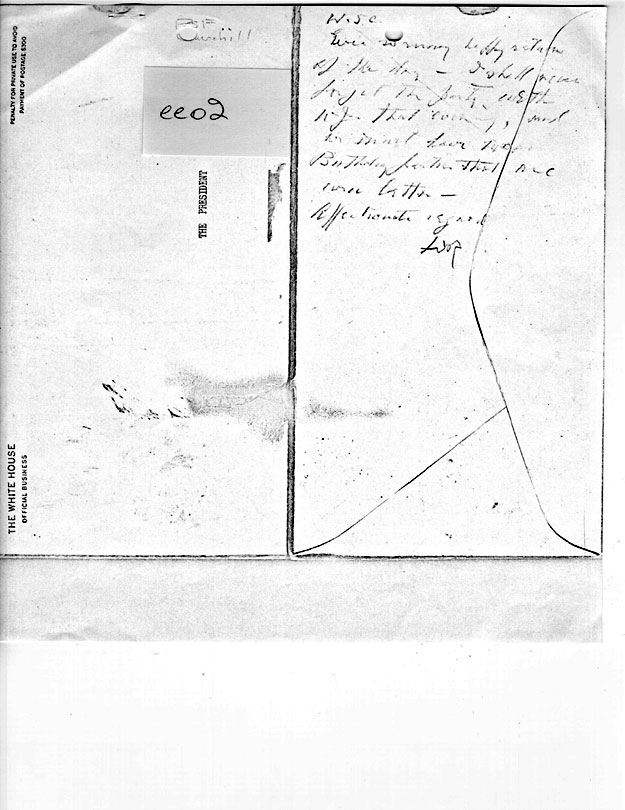 PENALTY FOR PRIVATE USE TO AVOID
PAYMENT OF POSTAGE $300
THE WHITE HOUSE
OFFICIAL BUSINESS
THE PRESIDENT
Churchill
ee02
W.S.C.
Ever so many happy returns
of the day — I shall never
forget the party with
that evening, and
we must have more
Birthday parties that are
even better —
Affectionate regards
FDR